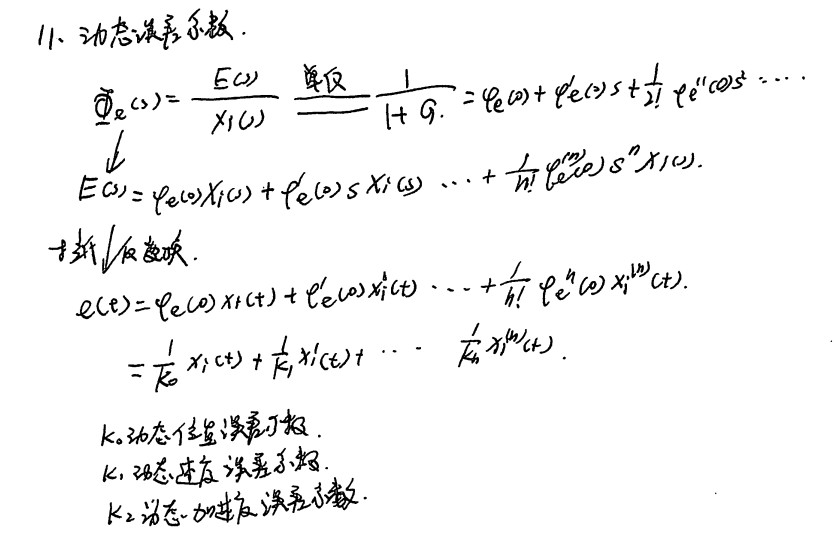 11、动态误差系数.
Φe(s) = E(s)/Xi(s) 单反 1/(1+G) = φe(0) + φ'e(0)s + 1/2! φe''(0)s² ····
E(s) = φe(0)Xi(s) + φ'e(0)sXi(s) ··· + 1/n! φe⁽ⁿ⁾(0)sⁿXi(s).
拉氏反变换.
e(t) = φe(0)xi(t) + φ'e(0)xi'(t) ··· + 1/n! φeⁿ(0)xi⁽ⁿ⁾(t).
= 1/K₀ xi(t) + 1/K₁ xi'(t) + ··· 1/Kn xi⁽ⁿ⁾(t).
K₀动态位置误差系数.
K₁动态速度误差系数.
K₂动态加速度误差系数.